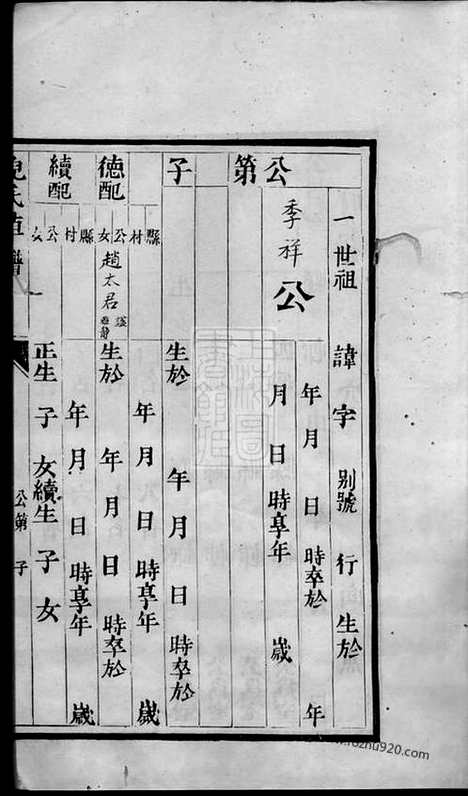 公第 子
一世祖 諱 字 别號 行 生於
季祥公 年 月 日 時卒於 年
月 日 時享年 歲
生於 年 月 日 時卒於
縣 村 年 月 日 時享年 歲
德配 公 女 趙太君 生於 年 月 日 時卒於
縣 村 年 月 日 時享年 歲
續配 公 女 正生 子 女 續生 子 女
氏 譜 公第 子